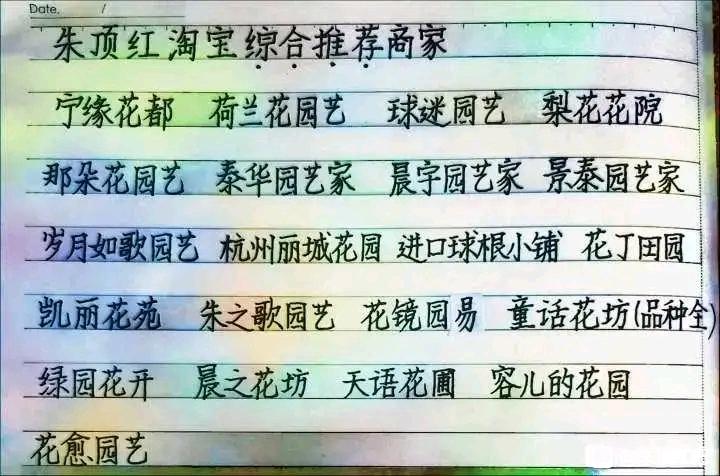 Date. /
朱顶红淘宝综合推荐商家
宁缘花都 荷兰花园艺 球迷园艺 梨花花院
那朵花园艺 泰华园艺家 晨宇园艺家 景泰园艺家
岁月如歌园艺 杭州丽城花园 进口球根小铺 花丁田园
凯丽花苑 朱之歌园艺 花镜园易 童话花坊(品种全)
绿园花开 晨之花坊 天语花圃 容儿的花园
花愈园艺